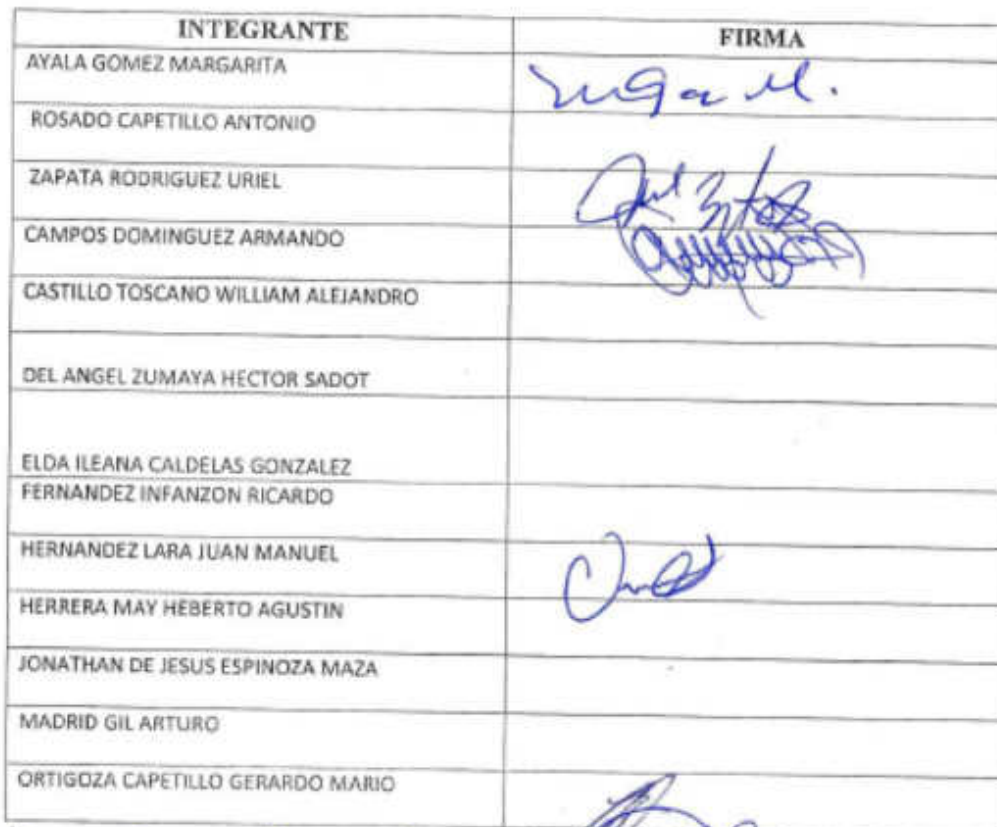 INTEGRANTE FIRMA
AYALA GOMEZ MARGARITA
ROSADO CAPETILLO ANTONIO
ZAPATA RODRIGUEZ URIEL
CAMPOS DOMINGUEZ ARMANDO
CASTILLO TOSCANO WILLIAM ALEJANDRO
DEL ANGEL ZUMAYA HECTOR SADOT
ELDA ILEANA CALDELAS GONZALEZ
FERNANDEZ INFANZON RICARDO
HERNANDEZ LARA JUAN MANUEL
HERRERA MAY HEBERTO AGUSTIN
JONATHAN DE JESUS ESPINOZA MAZA
MADRID GIL ARTURO
ORTIGOZA CAPETILLO GERARDO MARIO